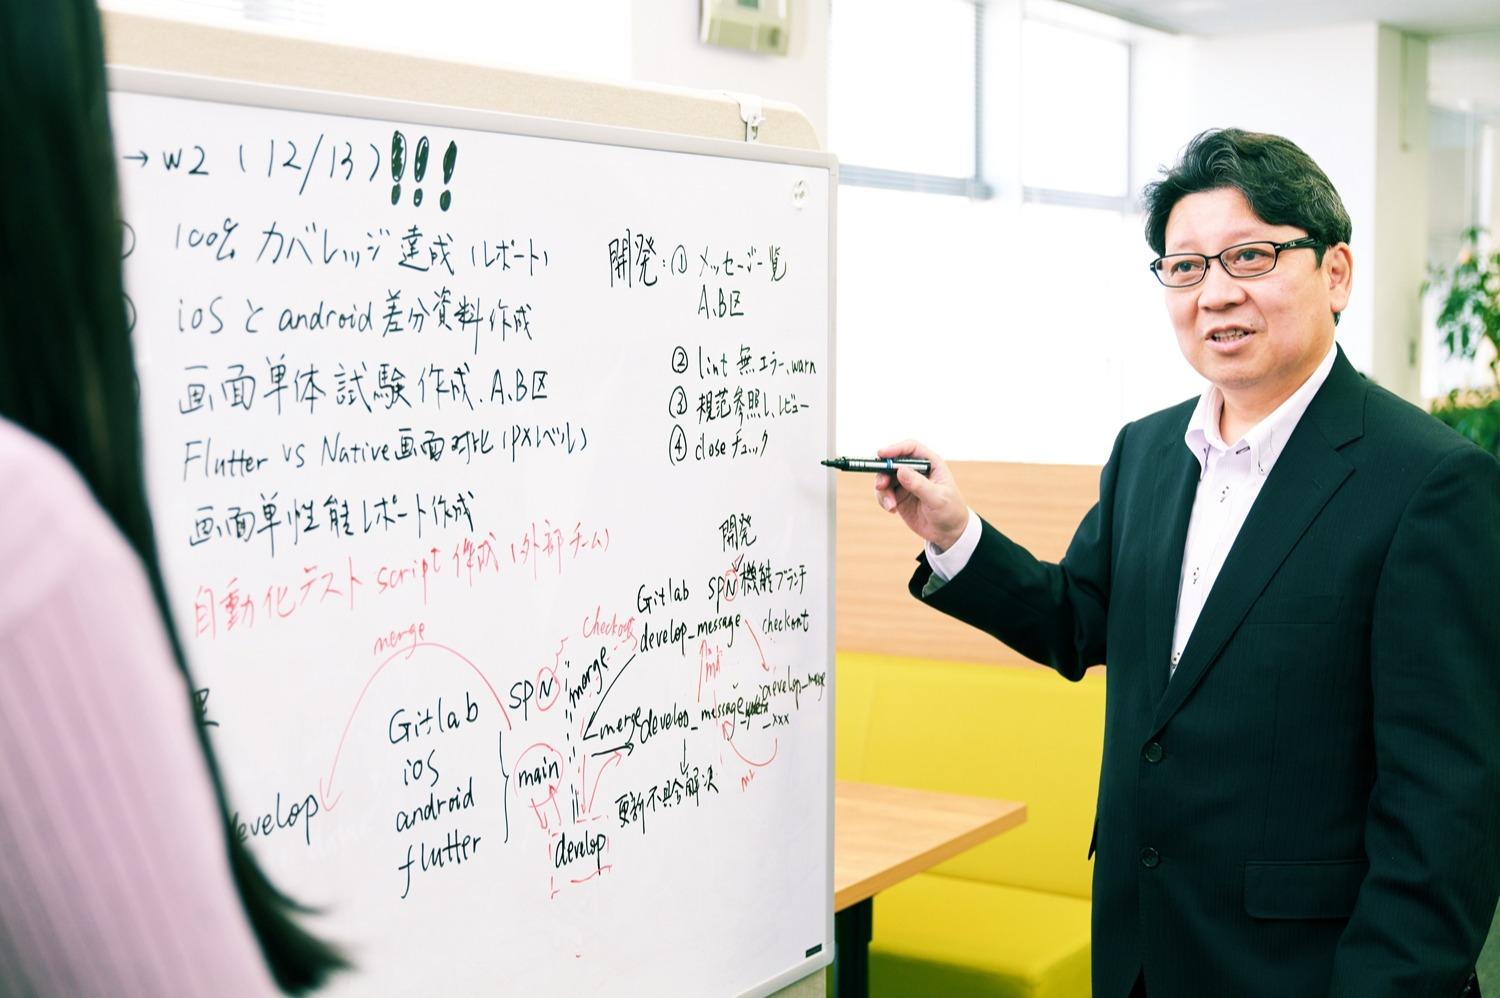 → W2 (12/13) !!!
100% カバレッジ達成 (レポート)
iOS と android 差分資料作成
画面単体試験作成、A、B区
Flutter vs Native画面对比 (PXレベル)
画面単性能レポート作成
自動化テスト script 作成 (外部チーム)
開発:① メッセージ一覧
A、B区
② lint 無エラー、warn
③ 規范参照し、レビュー
④ close チェック
開発
Gitlab SPN 機能ブランチ
develop_message
checkout
checkout
merge
merge
SPN
merge
develop_message
develop
_xxx
更新不具合解決
main
develop
Gitlab
iOS
android
flutter
develop